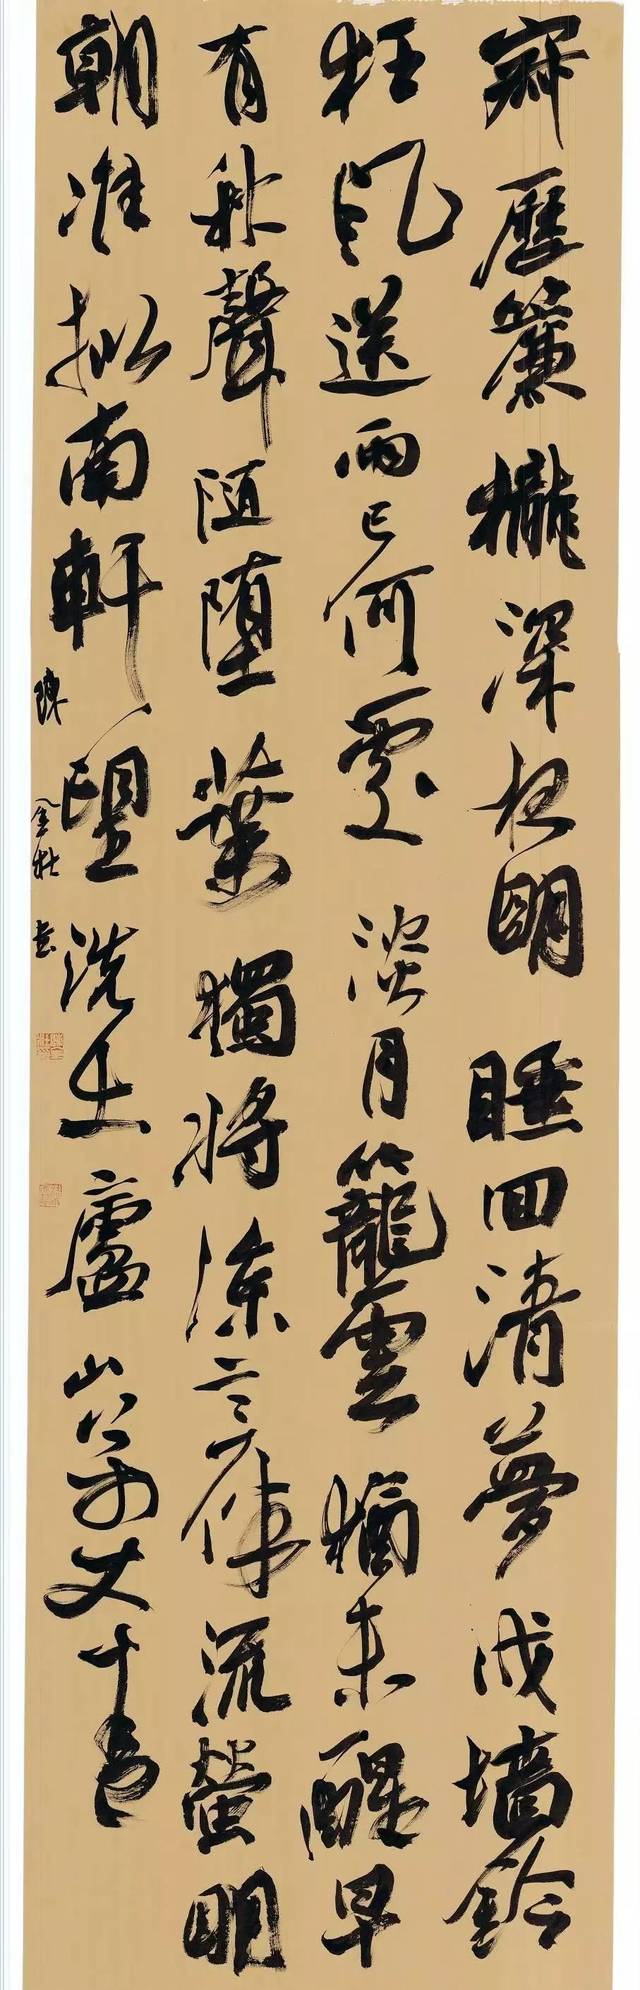 寂歷簾櫳深夜明睡回清夢戍墙鈴
狂風送雨已何處淡月籠雲猶未醒早
有秋聲随堕葉獨將凉意伴流螢明
朝准拟南軒望洗出廬山萬丈青
陳金